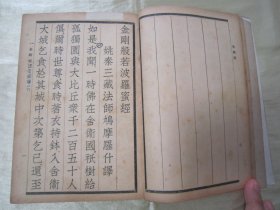 金剛般若波羅蜜經
姚秦三藏法師鳩摩羅什譯
如是我聞一時佛在舍衛國祇樹給
孤獨園與大比丘衆千二百五十人
俱爾時世尊食時著衣持鉢入舍衛
大城乞食於其城中次第乞已還至